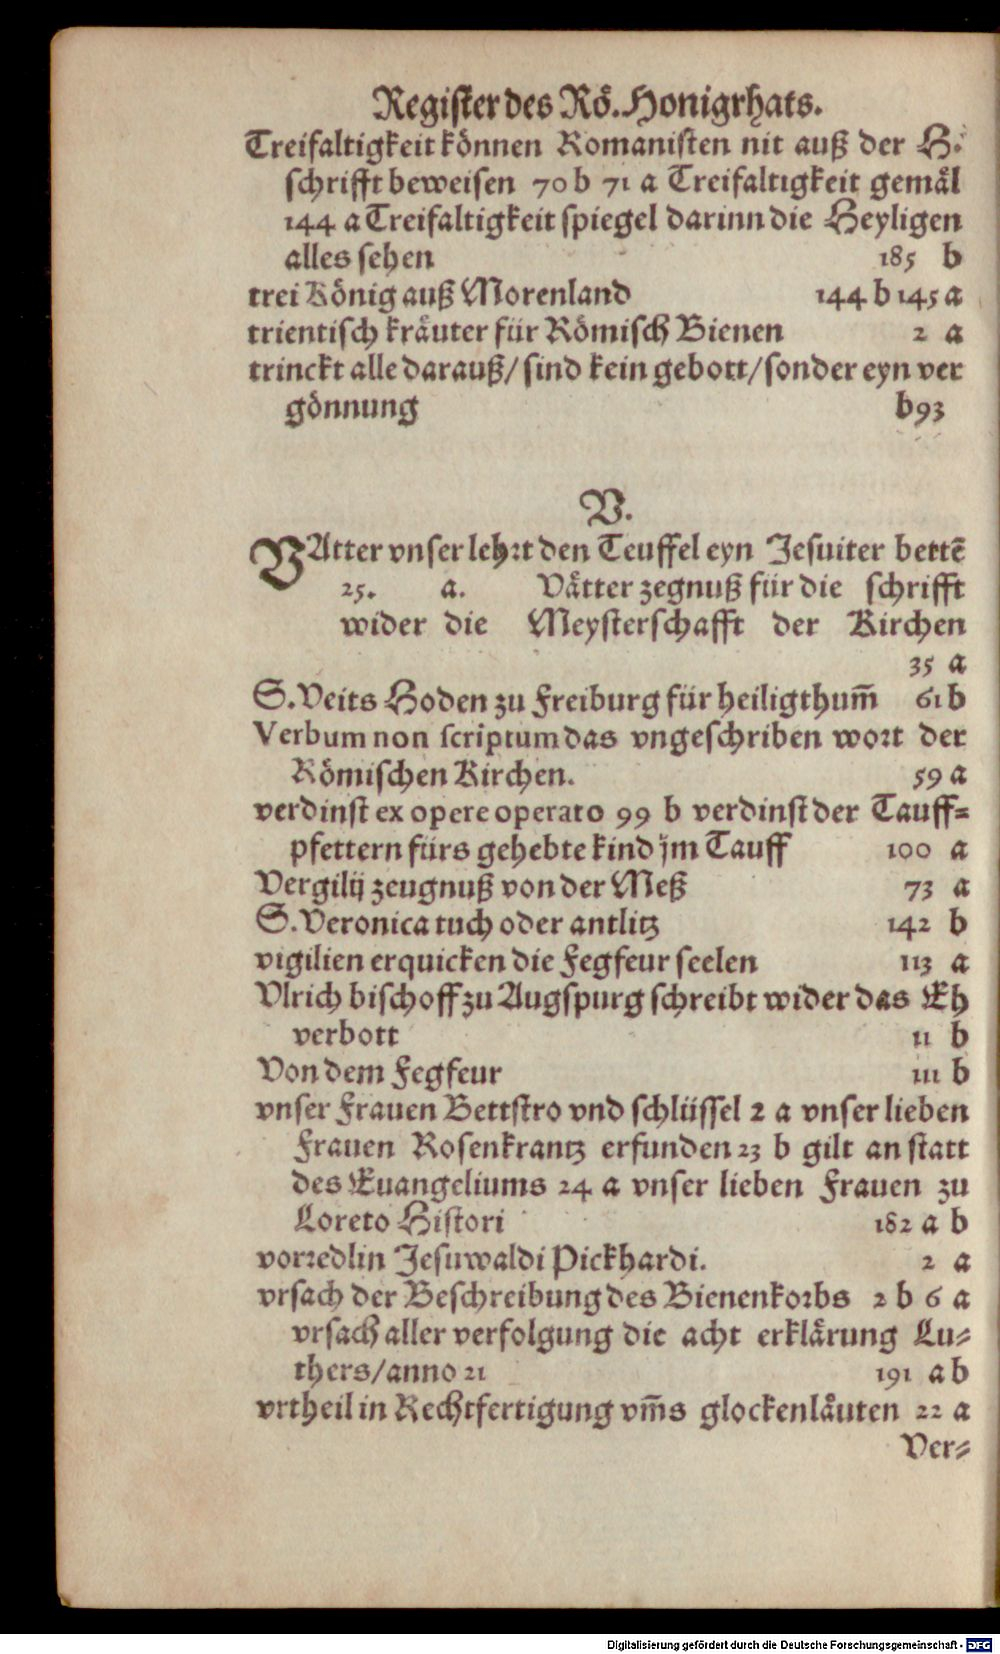 Register des Rö. Honigrhats.
Treifaltigkeit können Romanisten nit auß der H.
schrifft beweisen 70 b 71 a Treifaltigkeit gemäl
144 a Treifaltigkeit spiegel darinn die Heyligen
alles sehen 185 b
trei König auß Morenland 144 b 145 a
trientisch kräuter für Römisch Bienen 2 a
trinckt alle darauß/ sind kein gebott/ sonder eyn ver
gönnung b93
V.
VAtter vnser lehrt den Teuffel eyn Jesuiter bettē
25. a. Vätter zegnuß für die schrifft
wider die Meysterschafft der Kirchen
35 a
S. Veits Hoden zu Freiburg für heiligthum̄ 61 b
Verbum non scriptum das vngeschriben wort der
Römischen Kirchen. 59 a
verdinst ex opere operato 99 b verdinst der Tauff-
pfettern fürs gehebte kind jm Tauff 100 a
Vergilij zeugnuß von der Meß 73 a
S. Veronica tuch oder antlitz 142 b
vigilien erquicken die Fegfeur seelen 113 a
Vlrich bischoff zu Augspurg schreibt wider das Eh
verbott 11 b
Von dem Fegfeur 111 b
vnser Frauen Bettstro vnd schlüssel 2 a vnser lieben
Frauen Rosenkrantz erfunden 23 b gilt an statt
des Euangeliums 24 a vnser lieben Frauen zu
Loreto Histori 182 a b
vorredlin Jesuwaldi Pickhardi. 2 a
vrsach der Beschreibung des Bienenkorbs 2 b 6 a
vrsach aller verfolgung die acht erklärung Lu-
thers/ anno 21 191 a b
vrtheil in Rechtfertigung vm̄s glockenläuten 22 a
Ver-
Digitalisierung gefördert durch die Deutsche Forschungsgemeinschaft - DFG